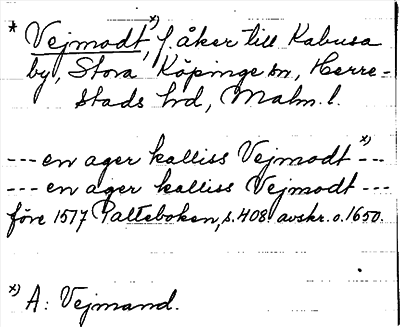 * Vejmodt,ˣ⁾ f. åker till Kabusa
by, Stora Köpinge sn, Herre-
stads hd, Malm. l.
--- en ager kalliss Vejmodtˣ⁾---
--- en ager kalliss Vejmodt ---
före 1517 Palteboken, s. 408. avskr. o. 1650.
ˣ⁾ A: Vejmand.